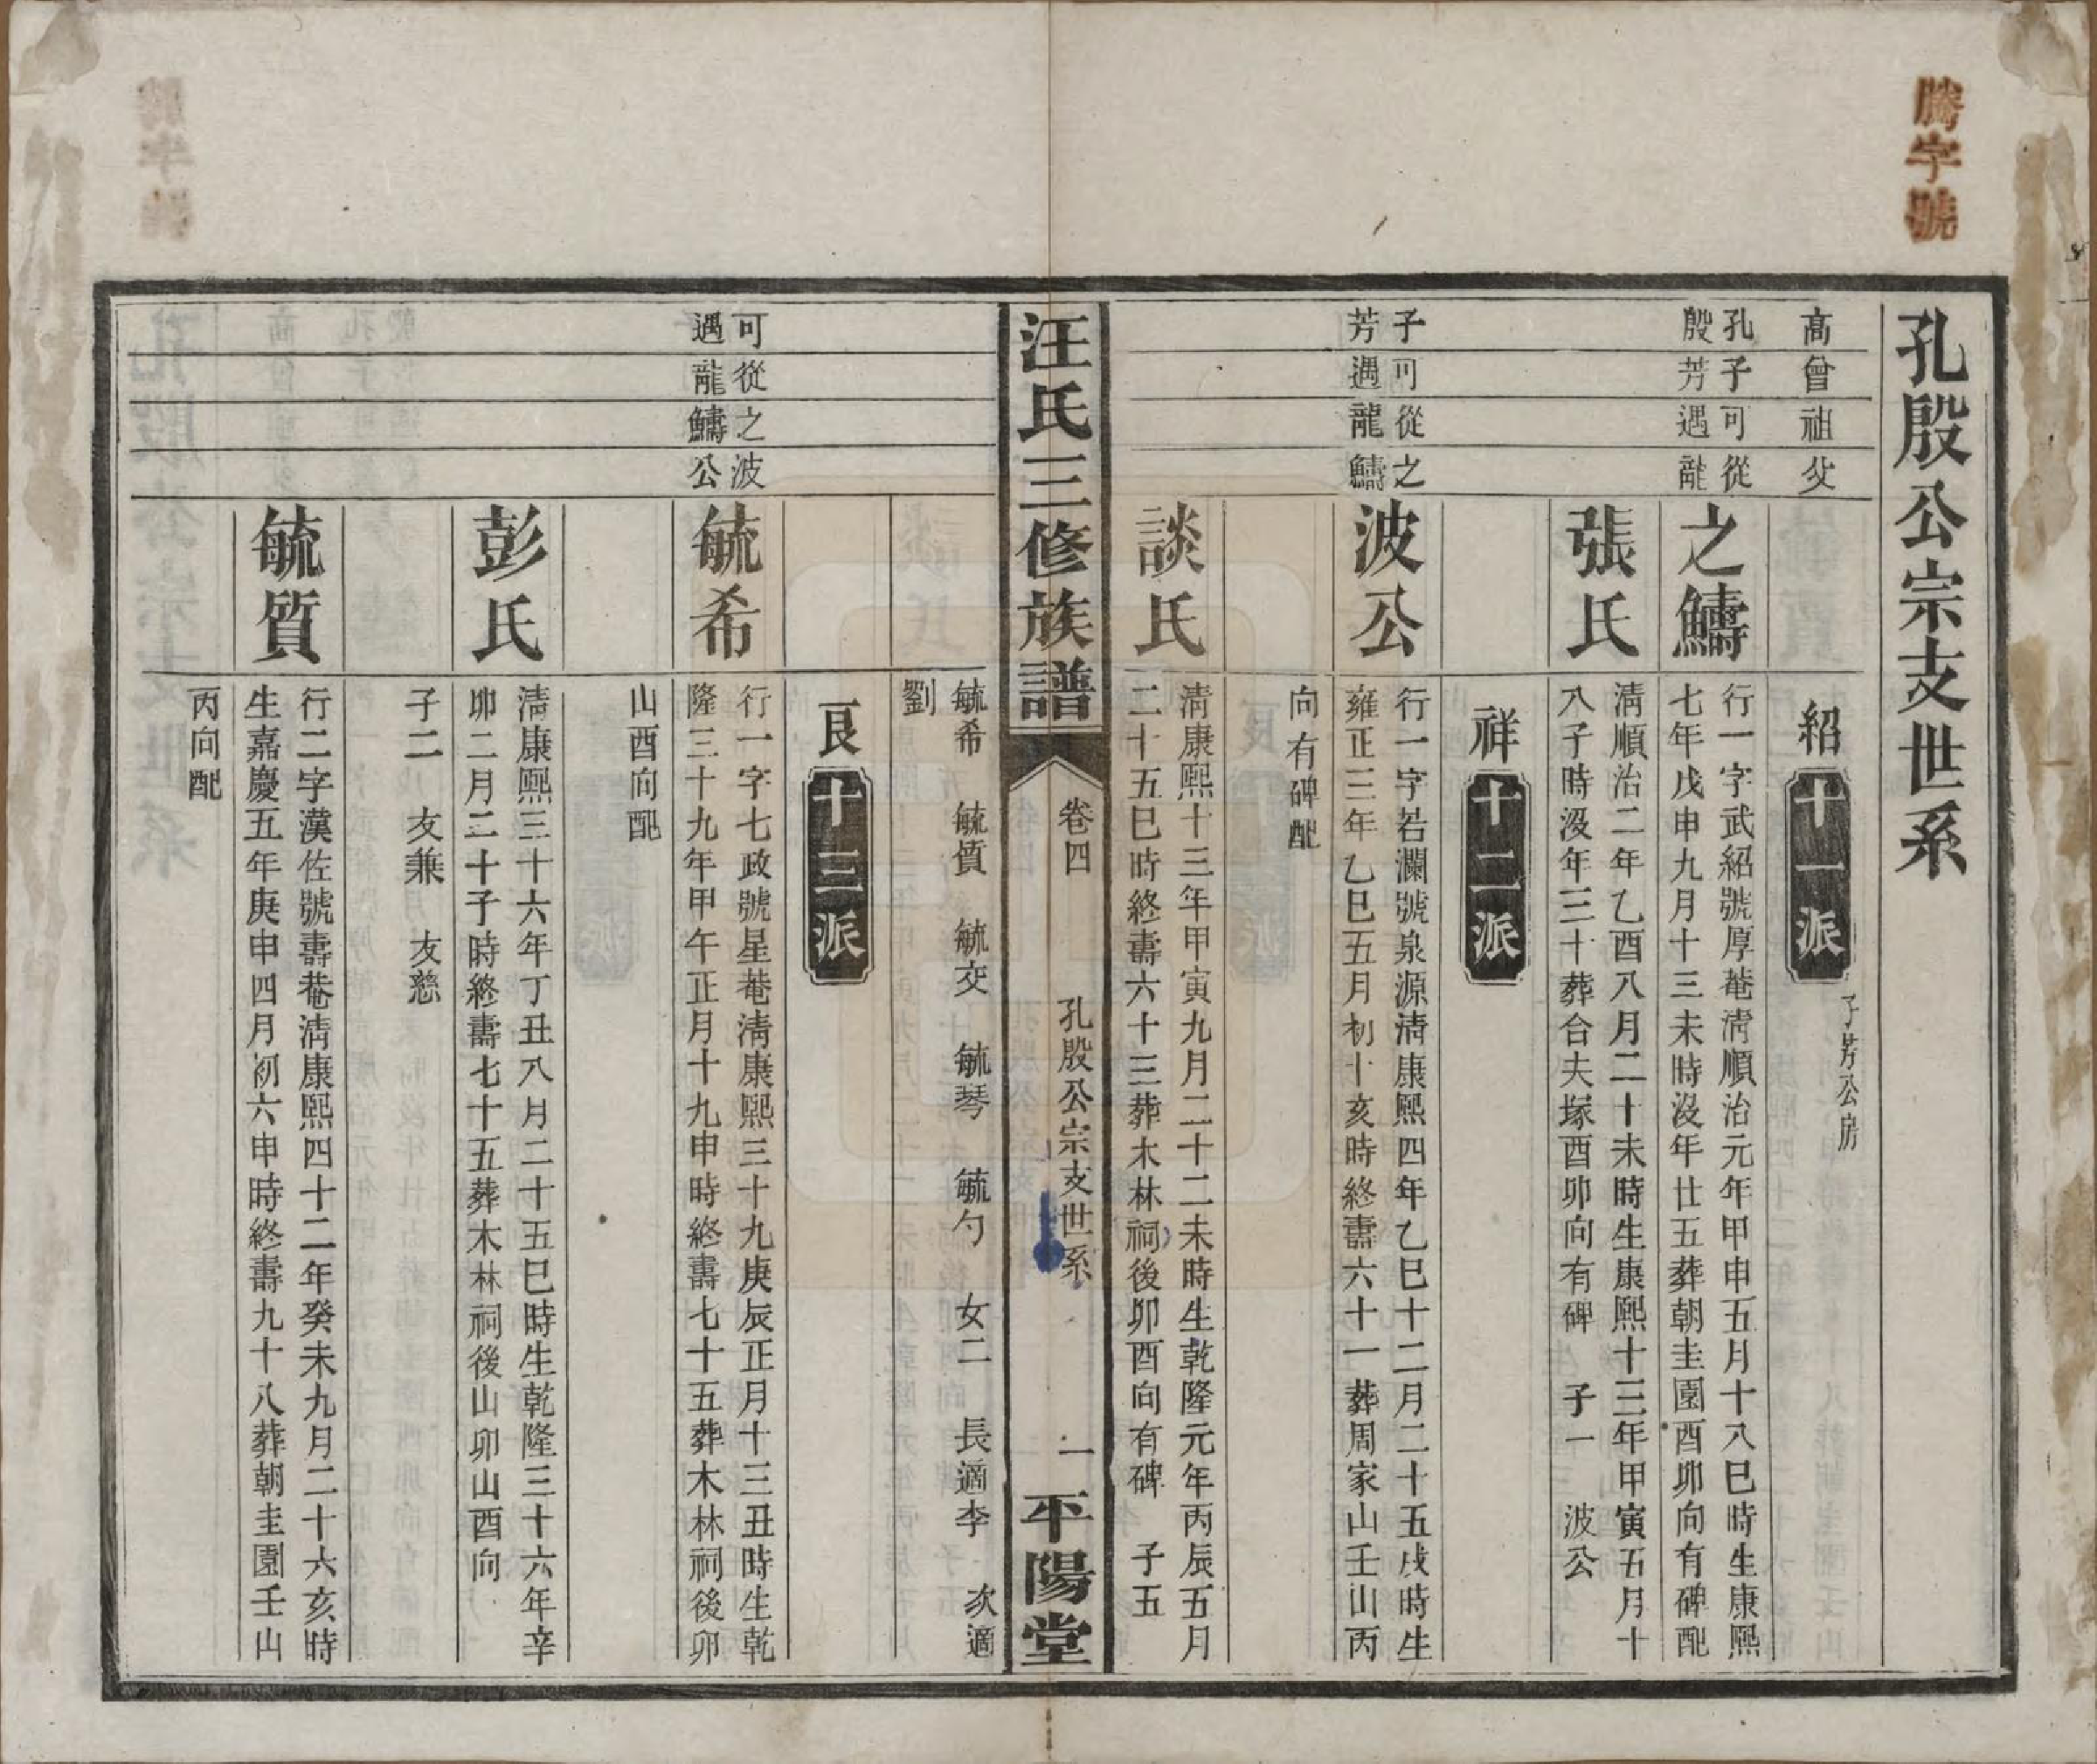 騰字號
孔殷公宗支世系
高曾祖父
紹 十一派 子芳公房
孔子可從
殷芳遇龍
之鱐
行一字武紹號厚菴淸順治元年甲申五月十八巳時生康熙
七年戊申九月十三未時沒年廿五葬朝圭園酉卯向有碑配
張氏
淸順治二年乙酉八月二十未時生康熙十三年甲寅五月十
八子時沒年三十葬合夫塚酉卯向有碑 子一 波公
祥 十二派
子可從之
芳遇龍鱐
波公
行一字若瀾號泉源淸康熙四年乙巳十二月二十五戌時生
雍正三年乙巳五月初十亥時終壽六十一葬周家山壬山丙
向有碑配
談氏
淸康熙十三年甲寅九月二十二未時生乾隆元年丙辰五月
二十五巳時終壽六十三葬木林祠後卯酉向有碑 子五
汪氏三修族譜 卷四 孔殷公宗支世系 一 平陽堂
毓希 毓質 毓交 毓琴 毓勺 女二 長適李 次適
劉
良 十三派
可從之波
遇龍鱐公
毓希
行一字七政號星菴淸康熙三十九庚辰正月十三丑時生乾
隆三十九年甲午正月十九申時終壽七十五葬木林祠後卯
山酉向配
彭氏
淸康熙三十六年丁丑八月二十五巳時生乾隆三十六年辛
卯二月二十子時終壽七十五葬木林祠後山卯山酉向
子二 友兼 友慈
毓質
行二字漢佐號壽菴淸康熙四十二年癸未九月二十六亥時
生嘉慶五年庚申四月初六申時終壽九十八葬朝圭園壬山
丙向配